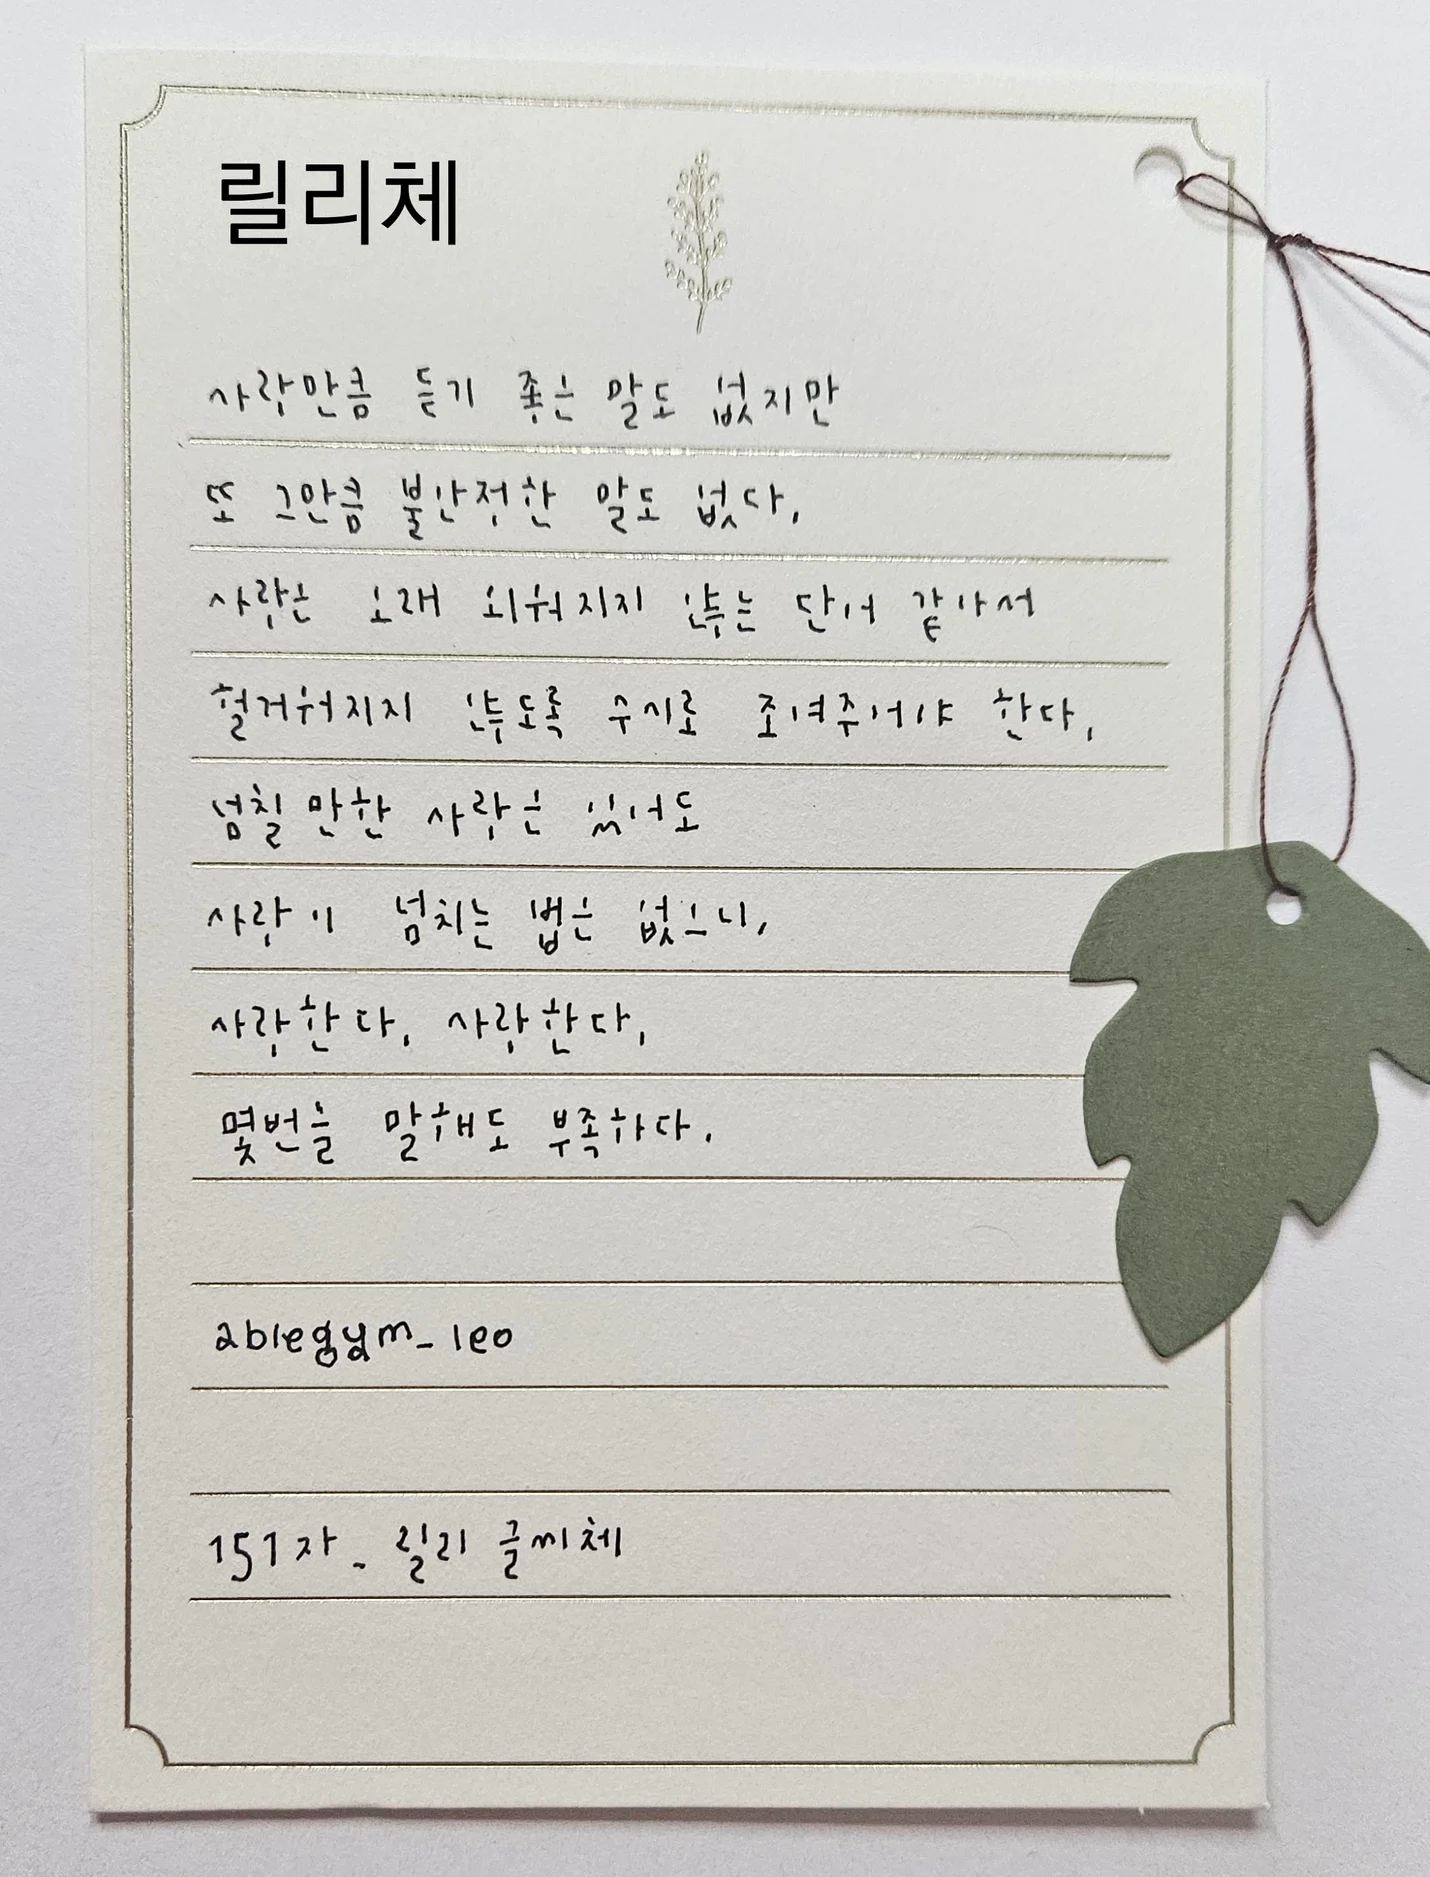 릴리체
사랑만큼 듣기 좋은 말도 없지만
또 그만큼 불안정한 말도 없다.
사랑은 오래 외워지지 않는 단어 같아서
헐거워지지 않도록 수시로 조여주어야 한다.
넘칠 만한 사랑은 있어도
사랑이 넘치는 법은 없으니,
사랑한다, 사랑한다,
몇번을 말해도 부족하다.
ablegym_leo
151자_ 릴리 글씨체